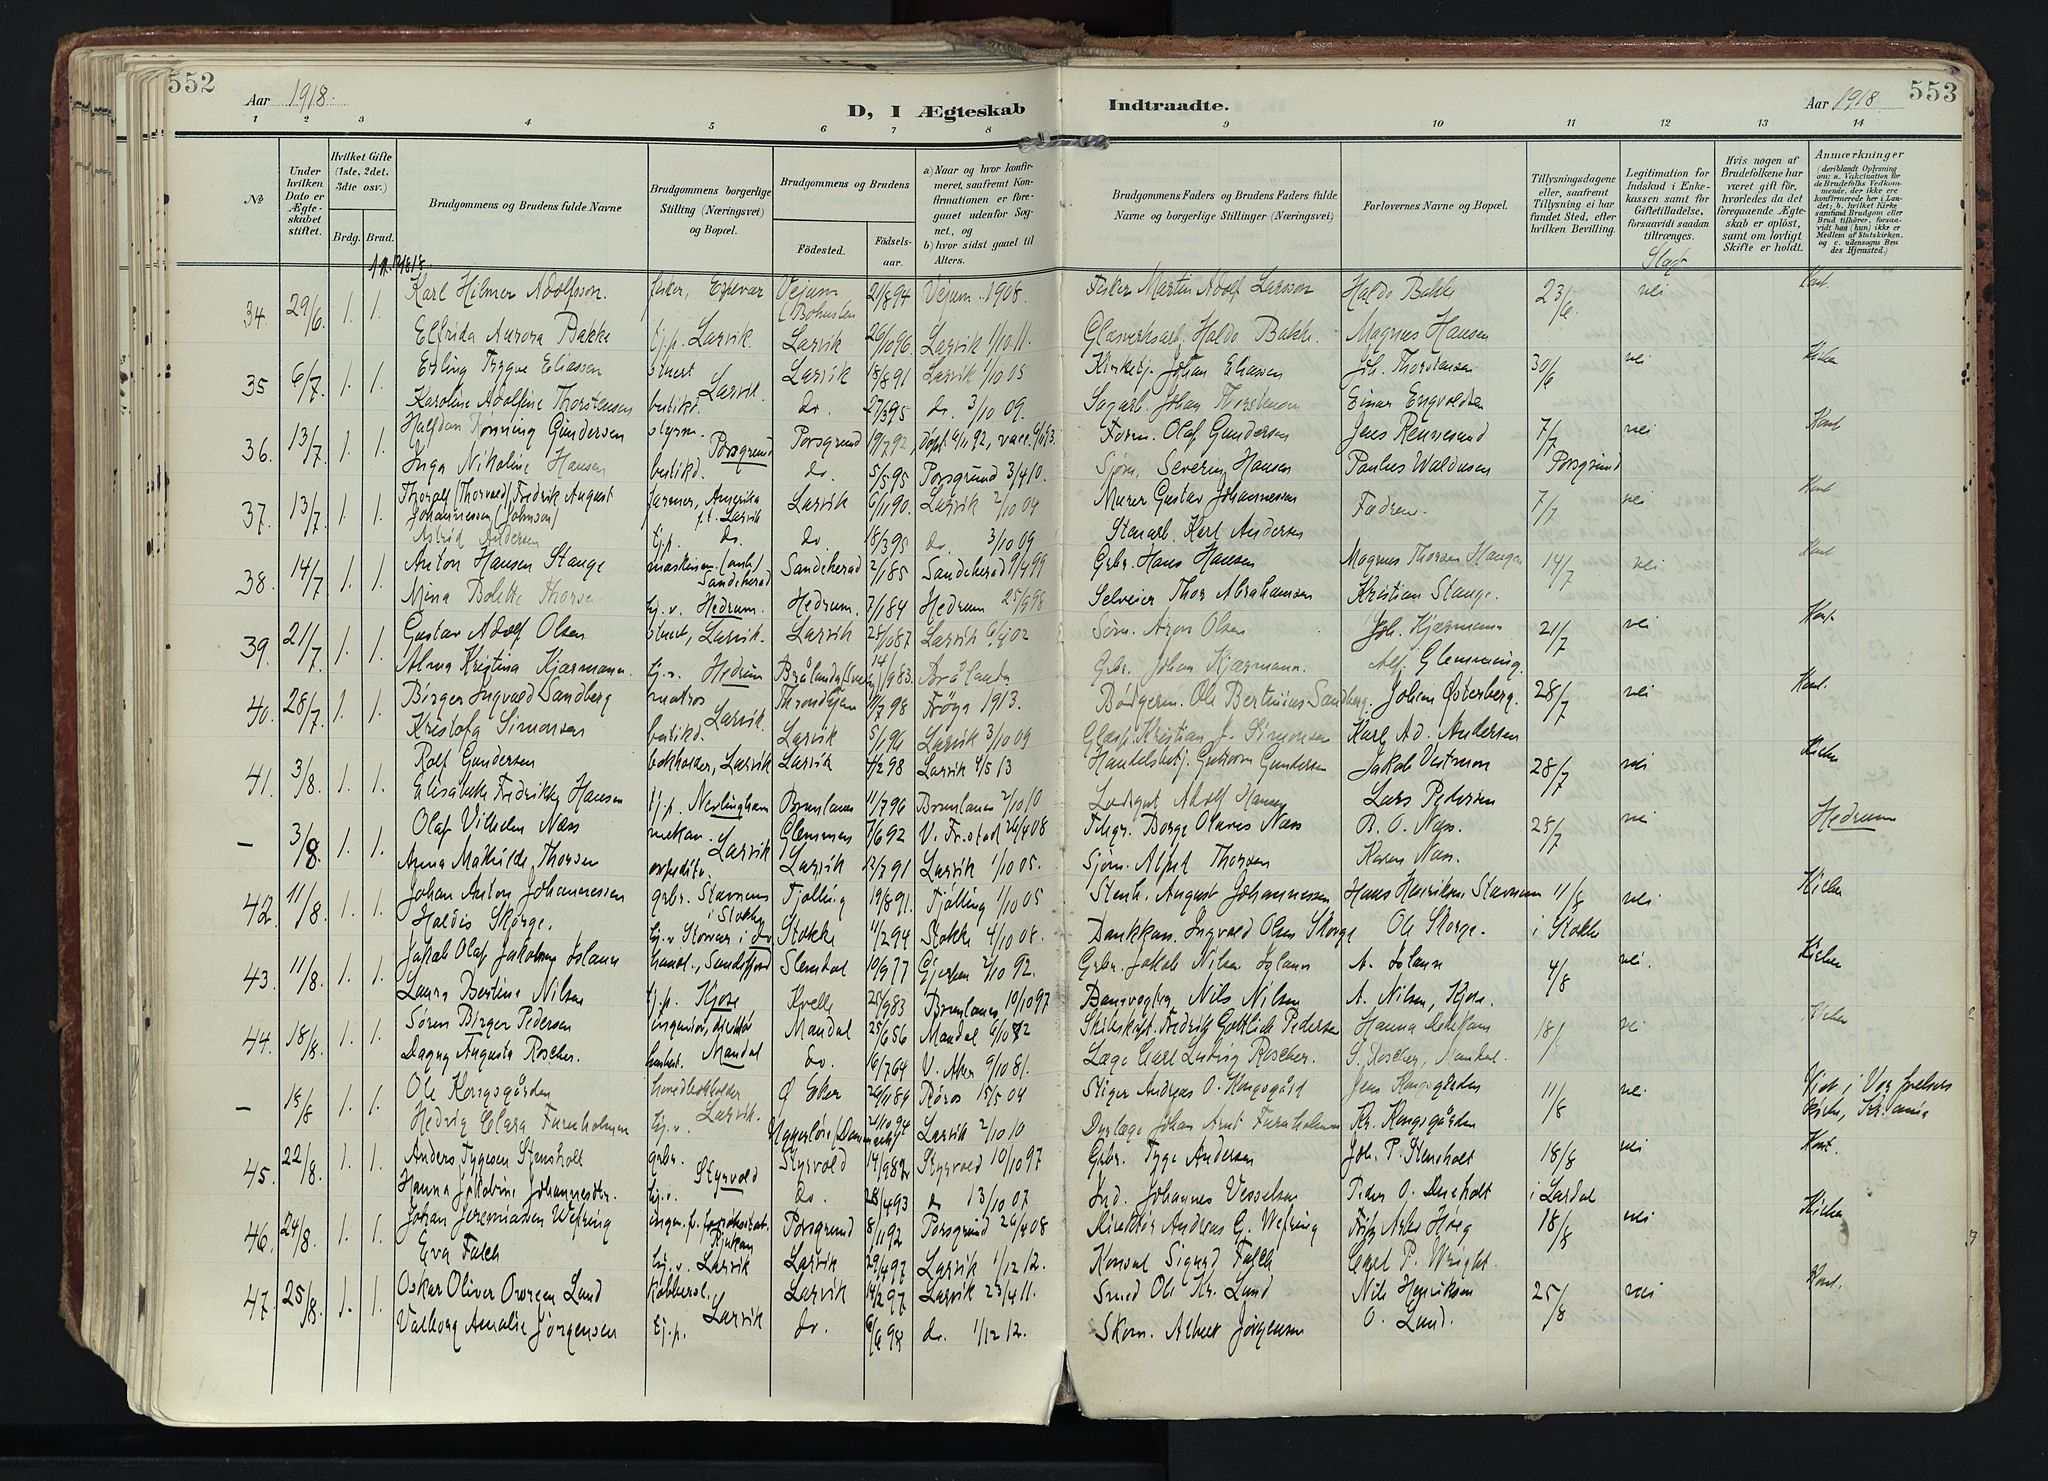 552
Aar 1918.
D, I Ægteskab
Indtraadte.
Aar 1918
553
1 2 3 4 5 6 7 8 9 10 11 12 13 14
No
Under hvilken Dato er Ægteskabet stiftet.
Hvilket Gifte (1ste, 2det, 3die osv.)
Brdg. Brud.
Brudgommens og Brudens fulde Navne
Brudgommens borgerlige Stilling (Næringsvei) og Bopæl.
Brudgommens og Brudens
Födested.
Födselsaar.
a) Naar og hvor konfirmeret, saafremt Konfirmationen er foregaaet udenfor Sognet, og
b) hvor sidst gaaet til Alters.
Brudgommens Faders og Brudens Faders fulde Navne og borgerlige Stillinger (Næringsvei)
Forlovernes Navne og Bopæl.
Tillysningsdagene eller, saafremt Tillysning ei har fundet Sted, efter hvilken Bevilling.
Legitimation for Indskud i Enkekassen samt for Giftetilladelse, forsaavidt saadan tiltrænges.
Hvis nogen af Brudefolkene har været gift för, hvorledes da det foregaaende Ægteskab er oplöst, samt om lovligt Skifte er holdt.
Anmærkninger
(deriblandt Oplysning om: a. Vakcination for de Brudefolks Vedkommende, der ikke ere konfirmerede her i Landet; b. hvilket Kirkesamfund Brudgom eller Brud tilhörer, forsaavidt han (hun) ikke er Medlem af Statskirken, og c. udensogns Brudes Hjemsted.)
Slegt
34. 29/6 1. 1. Karl Hilmer Adolfsson. fisker, Vejum (Bohuslen 21/8 94 Vejum 1908. Fisker Martin Adolf Larsson Haldo Bakke 23/6 nei Kont.
Elfrida Aurora Bakke tj.p. Larvik. Larvik 26/10 96. Larvik 1/10 11. Glasverksarb. Haldo Bakke. Magnus Hansen
35 6/7 1. 1. Erling Trygve Eliassen stuert Larvik. Larvik 15/8 91 Larvik 1/10 05 Kirketj. Johan Eliassen Joh. Thorstensen 30/6 nei Kirken
Karoline Adolfine Thorstensen butikd. do. 27/3 95 do. 3/10 09. Sagarb. Johan Thorstensen Einar Engvoldsen
36. 13/7 1. 1. Halfdan Gundersen styrm. Porsgrund Porsgrund 19/7 92, Form. Olaf Gundersen Jens Rennesund 7/7 nei Kont
Inga Nikoline Hansen butikd. do. 5/5 95 Porsgrund 3/4 10. Sjöm. Severin Hansen Paulus Waldusen Porsgrund
37. 13/7 1. 1. Thoralf (Thorvald) Fredrik August farmer, Amerika Larvik 6/11 90. Larvik 2/10 04 Murer Gustav Johannessen Fædrene. 7/7 nei Kont
Johannessen (Johnson) f.t. Larvik
Astrid Andersen tj.p. do. do. 18/3 95 do. 3/10 09 Stenarb. Karl Andersen
38. 14/7 1. 1. Anton Hansen Stange Sandeherad Sandeherad 2/1 85 Sandeherad 9/4 99 Grbr. Hans Hansen Magnus Thorsen Haugen 14/7 nei Kont
Mina Bolette Thorsen tj.v. Hedrum. Hedrum. 7/1 84 Hedrum 25/9 98 Selveier Thor Abrahamsen Kristian Stange.
39. 21/7 1. 1. Gustav Adolf Olsen stuert, Larvik. Larvik 28/10 87 Larvik 6/4 02 Sjöm. Aron Olsen Joh. Kjærmann 21/7 nei Kont.
Alma Kristina Kjærmann. tj.v. Hedrum Brålanda 14/9 83. Brålanda Grbr. Johan Kjærmann. Alf. Glemming.
40. 28/7 1. 1. Birger Ingvald Sandberg matros Larvik. Throndhjem 11/7 98 Fröya 1913. Bödgerm. Ole Bertinius Sandberg. Johan Østerberg. 28/7 nei Kont.
Kristofa Simonsen butikd. Larvik 5/1 96 Larvik 3/10 09 Glasp. Kristian J. Simonsen Karl Ad. Andersen
41. 3/8 1. 1. Rolf Gundersen bokholder, Larvik Larvik 4/2 98 Larvik 4/5 13 Handelsbetj. Guttorm Gundersen Jakob Vestmoen 28/7 nei Kirken
Elisabeth Fredrikke Hansen tj.p. Nevlingham Brunlanes 11/7 96 Brunlanes 2/10 10 Lodsgut Adolf Hansen Lars Pedersen
– 3/8. 1. 1. Olaf Vilhelm Næss mekan. Larvik Glemmen 7/6 92 V. Fr.stad 26/4 08 Telegr. Borge Olaves Næss B. O. Næss. 25/7 nei Hedrum
Anna Mathilde Thorsen Larvik 12/7 91 Larvik 1/10 05. Sjöm. Alfred Thorsen Karen Næss.
42. 11/8 1. 1. Johan Anton Johannessen grbr. Stavnum i Stokke Tjölling 19/8 91. Tjölling 1/10 05 Stenh. August Johannessen Hans Henriksen, Stavnum 11/8 nei Kirken
Haldis Skorge. tj.v. i do Stokke 11/2 94 Stokke 4/10 08. Bankkass. Ingvald Olsen Skorge Ole Skorge. i Stokke
43. 11/8. 1. 1. Jakob Olaf Jakobsen handl., Sandefjord Slemdal 10/9 77 Gjerpen 2/10 92. Grbr. Jakob Nilsen 4/8 nei. Kirken
Laura Bertine Nilsen tj.p. Kjose Kvelle 25/9 83 Brunlanes 10/10 97 Banevogter Nils Nilsen A. Nilsen, Kjose.
44. 18/8. 1. 1. Sören Birger Pedersen ingeniör, direktör Mandal Mandal 25/6 56 Mandal 6/10 72 Skibskapt. Fredrik Gottlieb Pedersen 18/8 nei Kirken
Dagny Augusta Roscher. do. 16/7 64 V. Aker 9/10 81. Læge Carl Ludvig Roscher. S. Roscher, Mandal.
– 15/8 1. 1. Ole Kongsgården hovedbokholder Larvik. Ø Eker 26/11 89 Röros 15/5 04 Stiger Andreas O. Kongsgård Jens Kongsgården 11/8 nei Viet i Vor frelsers
Hedvig Clara Furuholmen tj.v. 21/10 94 Larvik 2/10 10 Dyrlæge Johan Arnt Furuholmen Kr. Kongsgården kirke, Kr.ania
45. 22/8. 1. 1. Anders Tygesen Stensholt grbr. Styrvold Styrvold 14/9 82 Styrvold 10/10 97 Grbr. Tyge Andersen Joh. P. Stensholt 18/8 nei Kont.
Hanna Jakobine Johannesdtr. tj.v. do. 28/4 93 13/10 07 Ind. Johannes Vesselsen i Lardal
46. 24/8. 1. 1. Johan Jeremiassen Wefring Rjukan Porsgrund 8/11 92 Porsgrund 26/4 08 Direktör Andreas G. Wefring 18/8 nei Kirken
Eva Falch tj.v. Larvik Larvik 29/4 97 Larvik 1/12 12. Konsul Sigurd Falch Carl P. Wright.
47. 25/8. 1. 1. Oskar Oliver Lund Larvik Larvik 14/2 97 Larvik 23/4 11. Smed Ole Kr. Lund Nils Henriksen 25/8 nei Kont.
Valborg Amalie Jörgensen tj.p. do. 6/6 98 do. 1/12 12. Skom. Albert Jörgensen O. Lund.